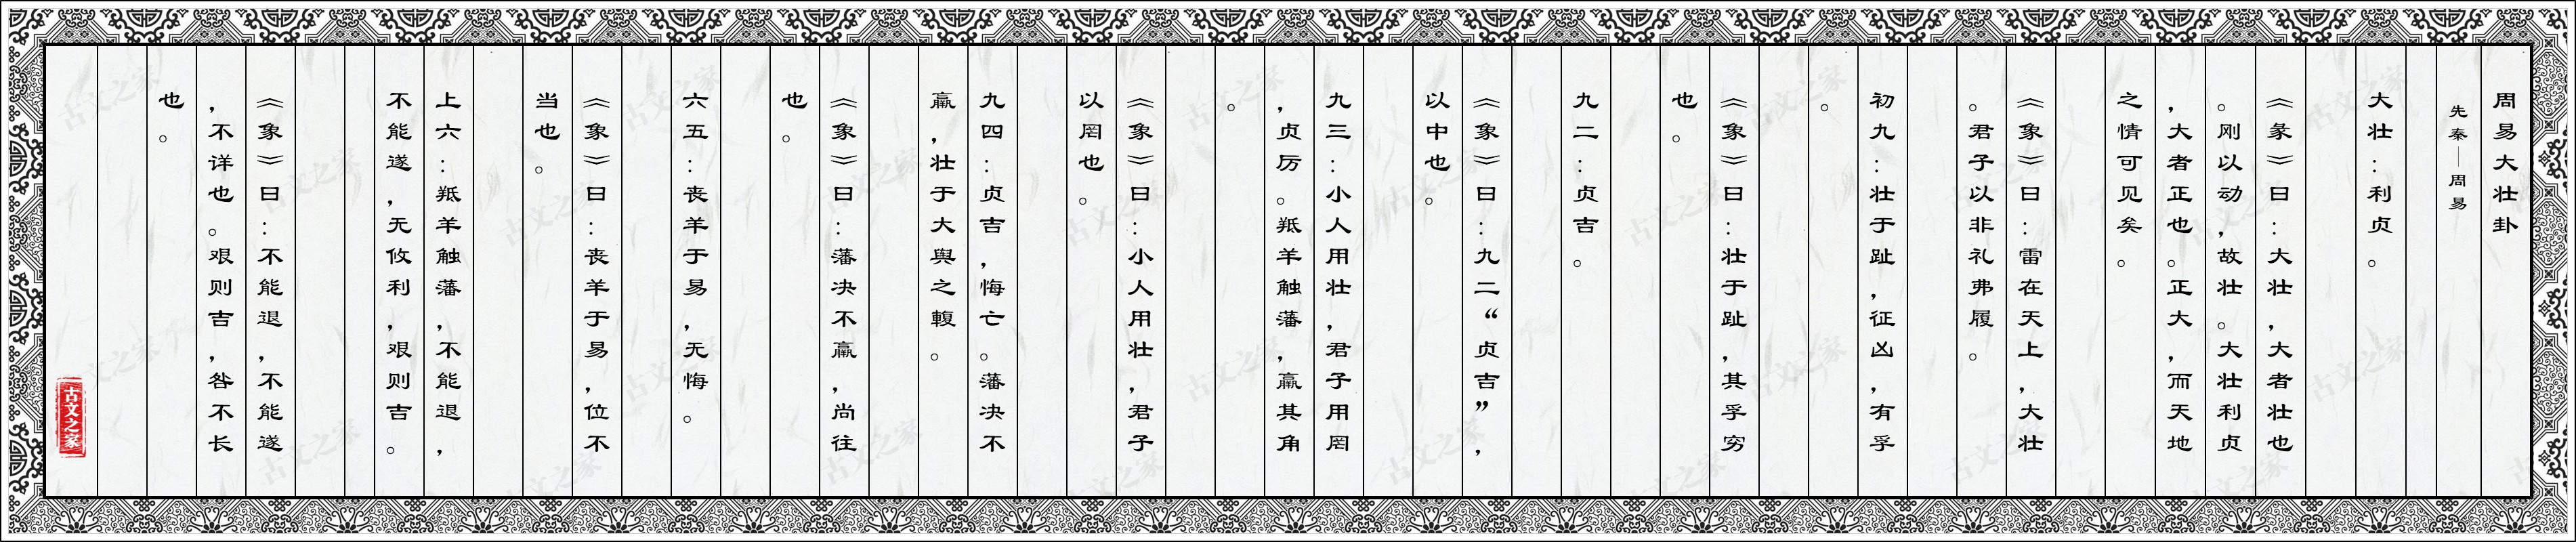 周易大壮卦
先秦—周易
大壮：利贞。
《彖》曰：大壮，大者壮也
。刚以动，故壮。大壮利贞
，大者正也。正大，而天地
之情可见矣。
《象》曰：雷在天上，大壮
。君子以非礼弗履。
初九：壮于趾，征凶，有孚
。
《象》曰：壮于趾，其孚穷
也。
九二：贞吉。
《象》曰：九二“贞吉”，
以中也。
九三：小人用壮，君子用罔
，贞厉。羝羊触藩，羸其角
。
《象》曰：小人用壮，君子
以罔也。
九四：贞吉，悔亡。藩决不
羸，壮于大舆之輹。
《象》曰：藩决不羸，尚往
也。
六五：丧羊于易，无悔。
《象》曰：丧羊于易，位不
当也。
上六：羝羊触藩，不能退，
不能遂，无攸利，艰则吉。
《象》曰：不能退，不能遂
，不详也。艰则吉，咎不长
也。
古文之家